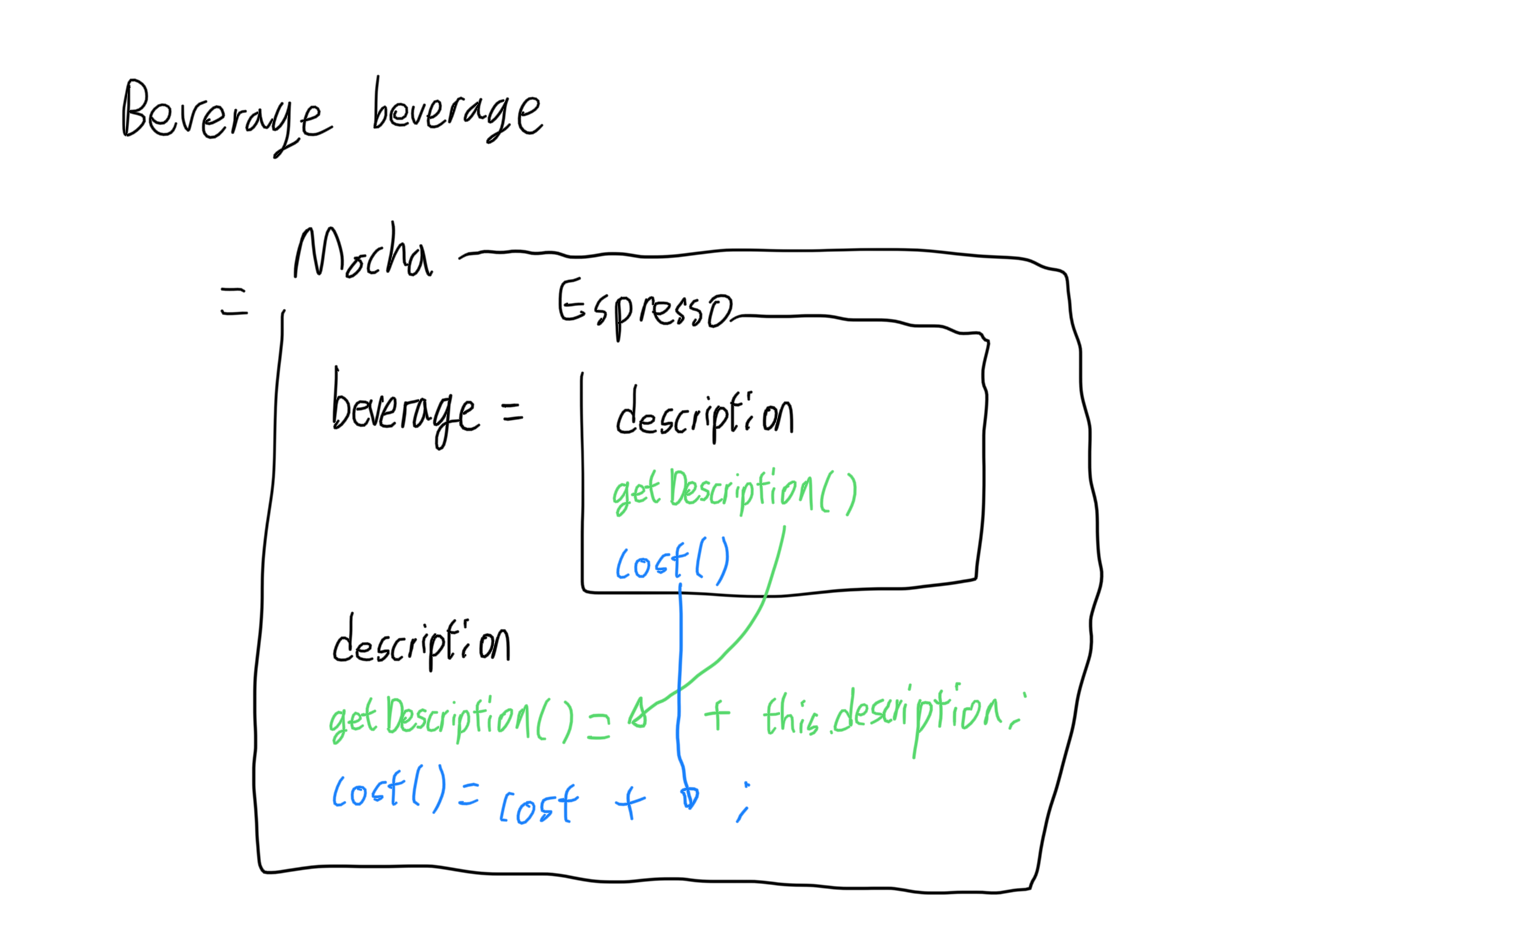 Beverage beverage
= Mocha
Espresso
beverage =
description
getDescription()
cost()
description
getDescription() = + this.description;
cost() = cost + ;